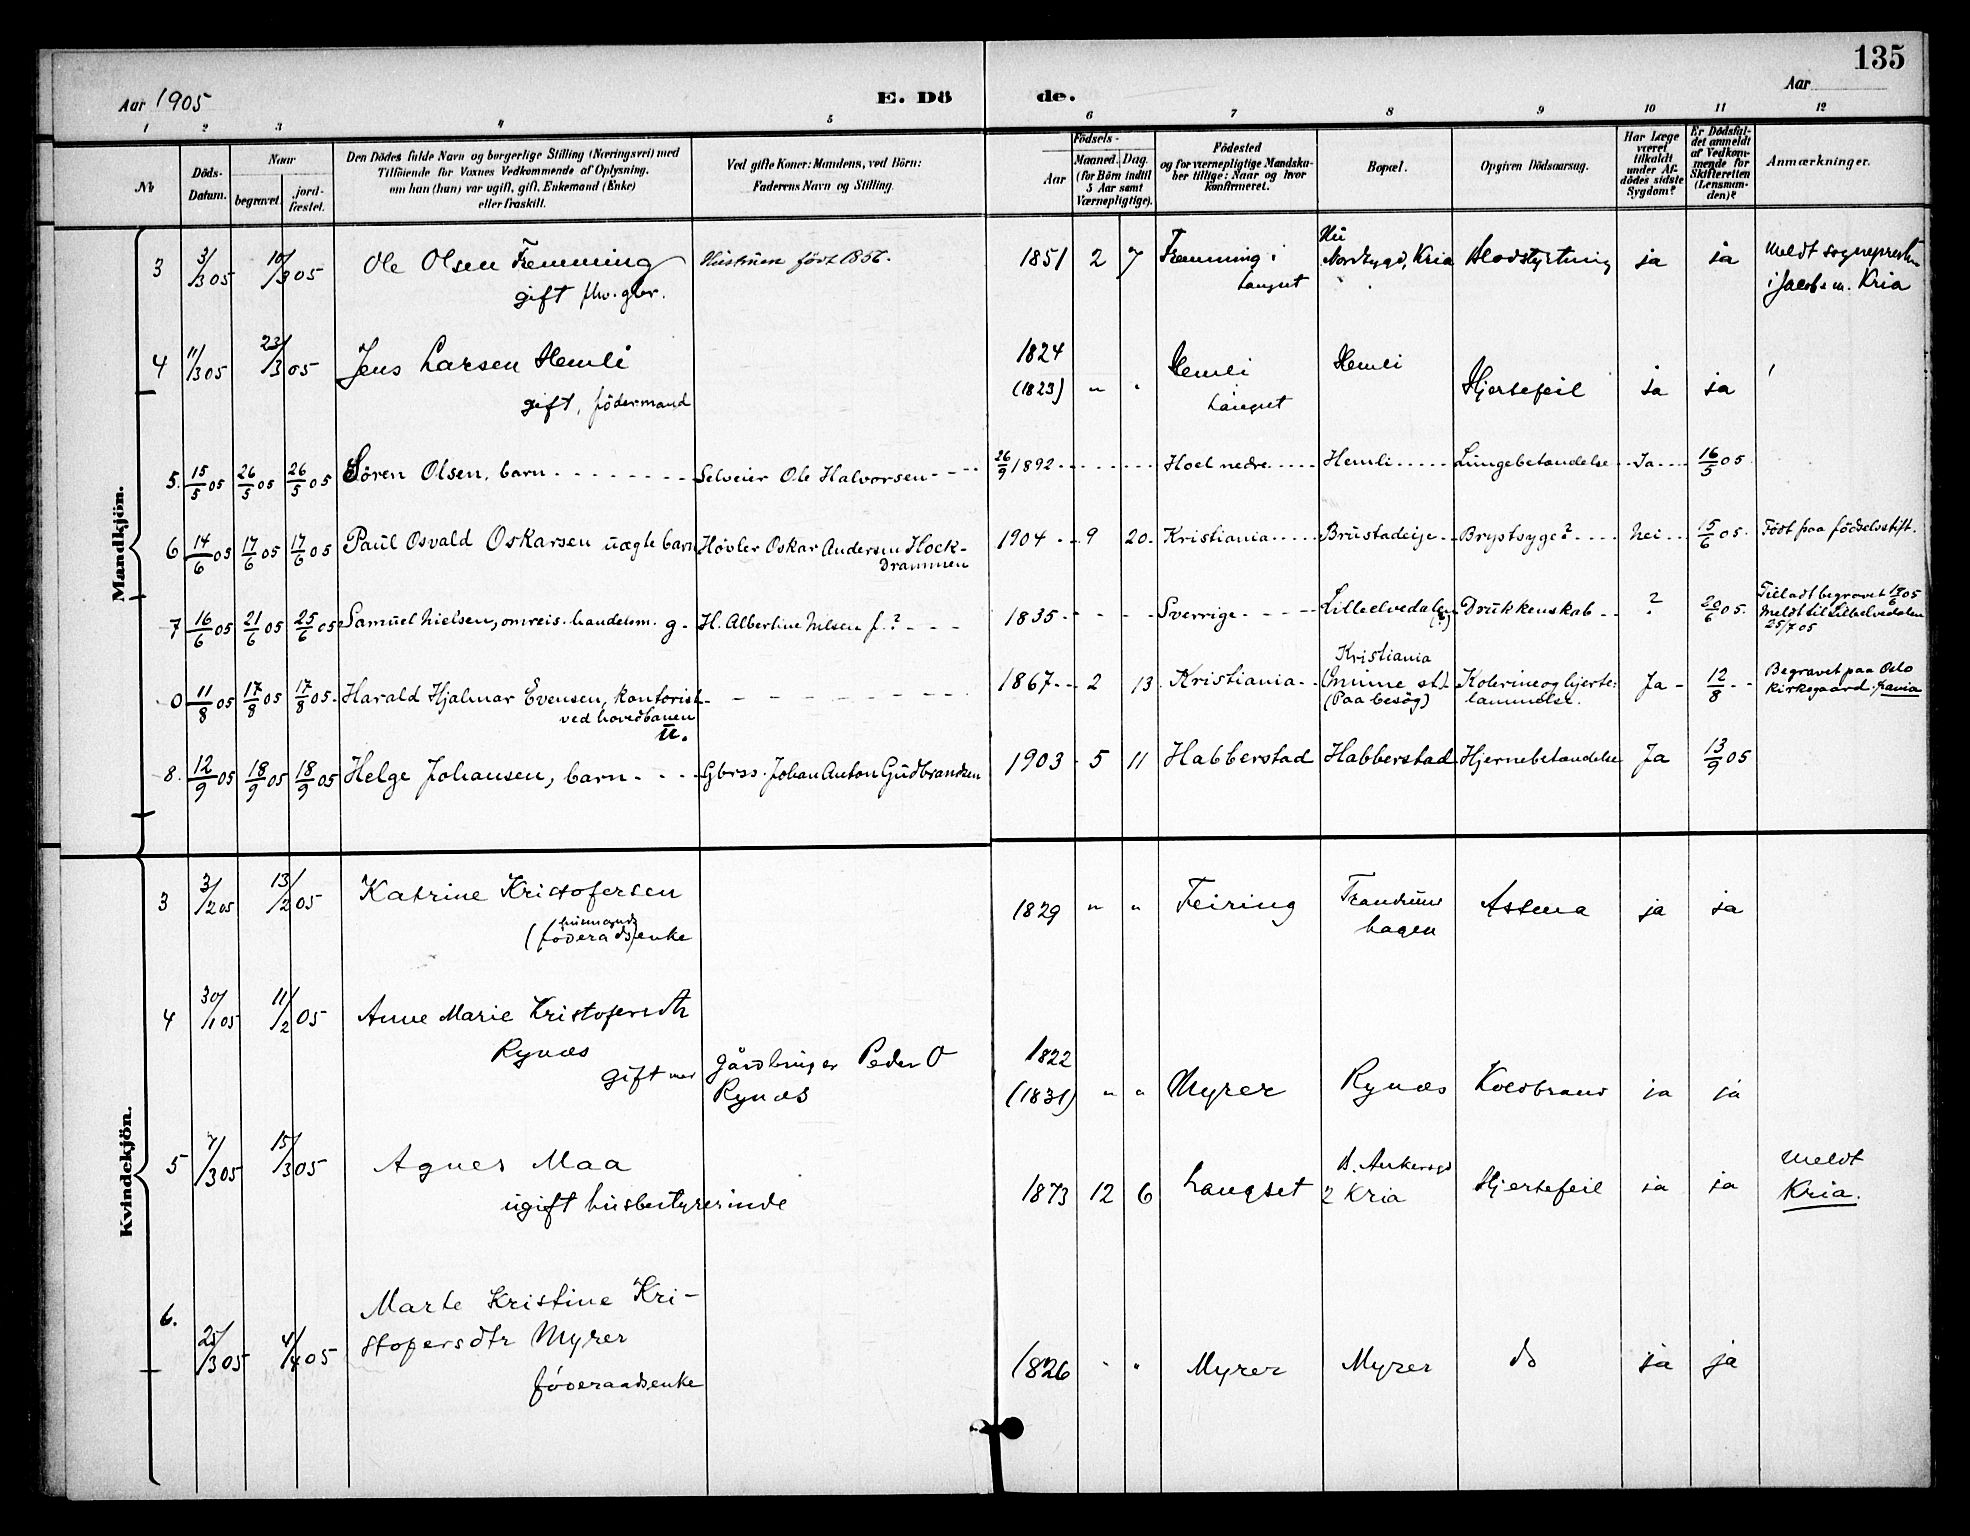 135
Aar 1905
E. Dö de.
Aar
1 2 3 4 5 6 7 8 9 10 11 12
No
Döds-Datum.
Naar begravet. jord-fæstet.
Den Dödes fulde Navn og borgerlige Stilling (Næringsvei) med
Tilföiende for Voxnes Vedkommende af Oplysning,
om han (hun) var ugift, gift, Enkemand (Enke)
eller fraskilt.
Ved gifte Koner: Mandens, ved Börn:
Faderens Navn og Stilling.
Födsels-
Aar
Maaned. Dag.
(for Börn indtil
5 Aar samt
Værnepligtige).
Födested
og for værnepligtige Mandska-
ber tillige: Naar og hvor
konfirmeret.
Bopæl.
Opgiven Dödsaarsag.
Har Læge
været
tilkaldt
under Af-
dödes sidste
Sygdom?
Er Dödsfal-
det anmeldt
af Vedkom-
mende for
Skifteretten
(Lensman-
den)?
Anmærkninger.
Mandkjön.
3 3/3 05 10/3 05 Ole Olsen Fremming Hustruen födt 1856. 1851 2 7 Fremming i Nordbygd, Kria Blodstyrtning ja ja Meldt sogneprest
gift Langset i Jacob m. Kria
4 11/3 05 23/3 05 Jens Larsen Hemli 1824 Hemli Hemli
gift, födermand (1823) " " Langset Hjertefeil ja ja
5. 15/5 05 26/5 05 26/5 05 Sören Olsen, barn Selveier Ole Halvorsen 26/9 1892 Hoel nedre Hemli Lungebetændelse Ja 16/5 05
6 14/6 05 17/6 05 17/6 05 Paul Osvald Oskarsen uægte barn Hövler Oskar Andersen Hock- 1904 9 20 Kristiania Brustadeije Brystsyge? Nei 15/6 05. Födt paa födselsstift.
Drammen
7 16/6 05 21/6 05 25/6 05 Samuel Nielsen, omreis. handelsm. g. H. Albertine Nilsen f.? 1835 Sverrige Lilleelvedalen (?) Drukkenskab ? 20/6 05. Tilladt begravet 19/6 05
Meldt til Lilleelvedalen
25/7 05
0 11/8 05 17/8 05 17/8 05 Harald Hjalmar Evensen, kontorist 1867 2 13 Kristiania Kristiania
ved hovedbanen
u.
(Paa besög) Kolerine og hjerte-
lammelse. Ja 12/8 Begravet paa Oslo
kirkegaard. Krania
8. 12/9 05 18/9 05 18/9 05 Helge Johansen, barn Gbrss. Johan Anton Gudbrandsen 1903 5 11 Habberstad Habberstad Hjernebetændelse Ja 13/9 05
Kvindekjön.
3 3/2 05 13/2 05 Katrine Kristofersen 1829 " " Feiring Trandum Astma ja ja
husmands
(föderaads) enke hagen
4 30/1 05 11/2 05 Anne Marie Kristofersdtr
Rynæs 1822
gift med gårdbruger Peder O
Rynæs (1831) " " Myrer Rynæs Koldbrand ja ja
5 7/3 05 15/3 05 Agnes Maa Meldt
ugift husbestyrerinde 1873 12 6 Langset B. Ankersgd
2 Kria Hjertefeil ja ja Kria.
6. 25/3 05 4/4 05 Marte Kristine Kri-
stofersdtr Myrer
föderaadsenke 1826 " " Myrer Myrer do ja ja